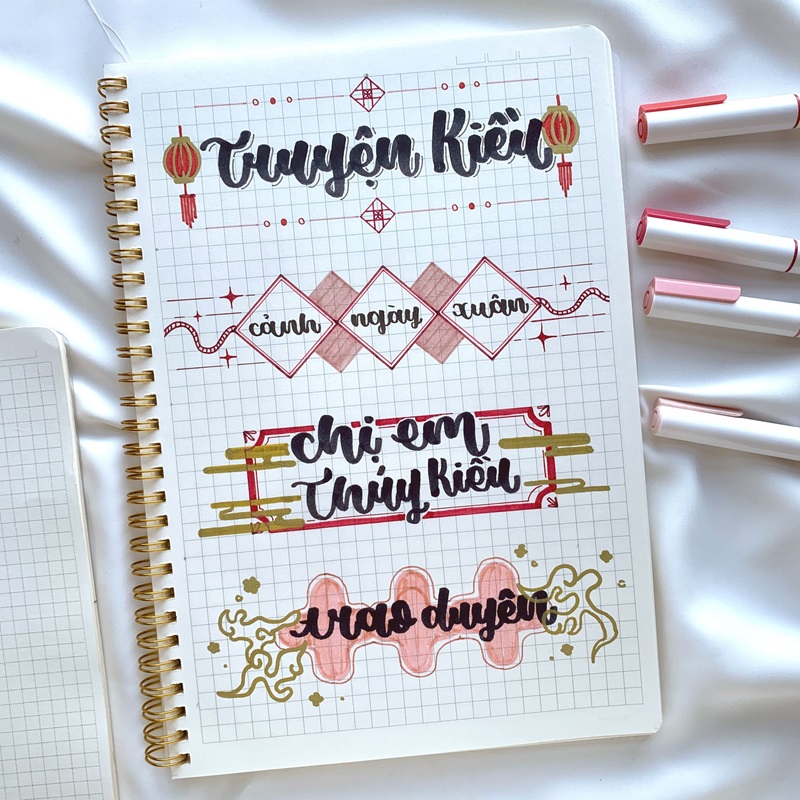 Truyện Kiều
cảnh ngày xuân
chị em
Thúy Kiều
trao duyên